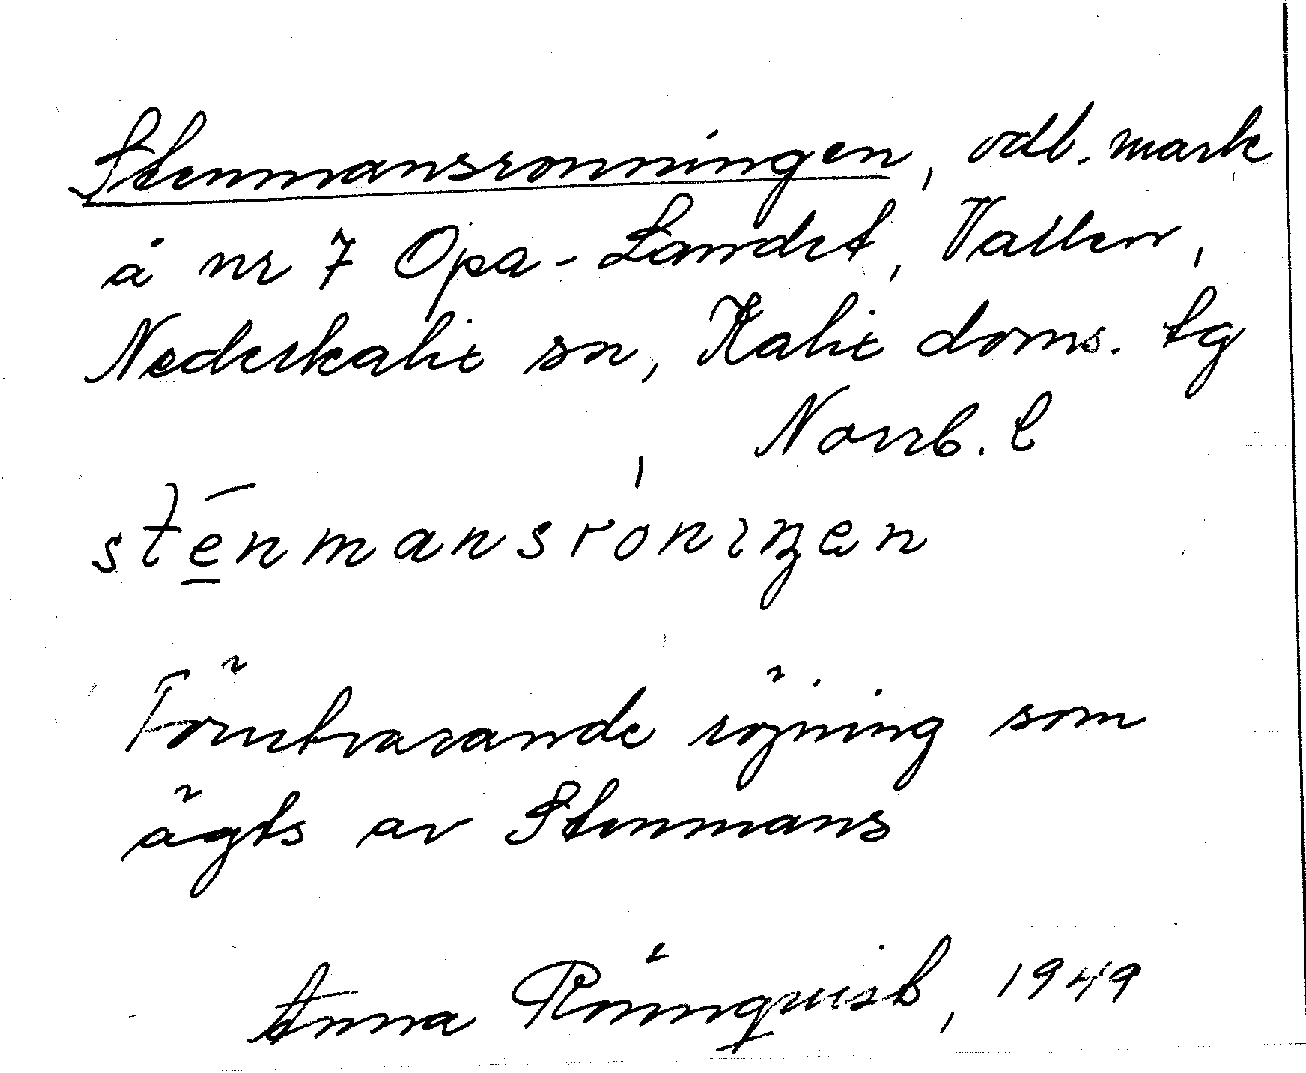 Stenmansronningen, odl. mark
å nr 7 Opa-Landet, Vallen,
Nederkalix sn, Kalix doms. tg
Norrb. l
sténmansróniŋen
Förutvarande röjning som
ägts av Stenmans
Anna Rönnquist, 1949